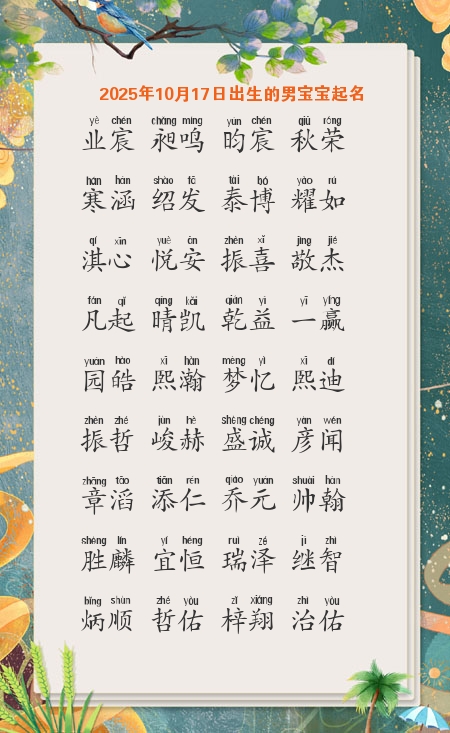 2025年10月17日出生的男宝宝起名
yè chén chǎng míng yún chén qiū róng
业宸 昶鸣 昀宸 秋荣
hán hán shào fā tài bó yào rú
寒涵 绍发 泰博 耀如
qí xīn yuè ān zhèn xǐ jìng jié
淇心 悦安 振喜 敬杰
fán qǐ qíng kǎi qián yì yī yíng
凡起 晴凯 乾益 一赢
yuán hào xī hàn mèng yì xī dí
园皓 熙瀚 梦忆 熙迪
zhèn zhé jùn hè shèng chéng yàn wén
振哲 峻赫 盛诚 彦闻
zhāng tāo tiān rén qiáo yuán shuài hàn
章滔 添仁 乔元 帅翰
shèng lín yí héng ruì zé jì zhì
胜麟 宜恒 瑞泽 继智
bǐng shùn zhé yòu zǐ xiáng zhì yòu
炳顺 哲佑 梓翔 治佑